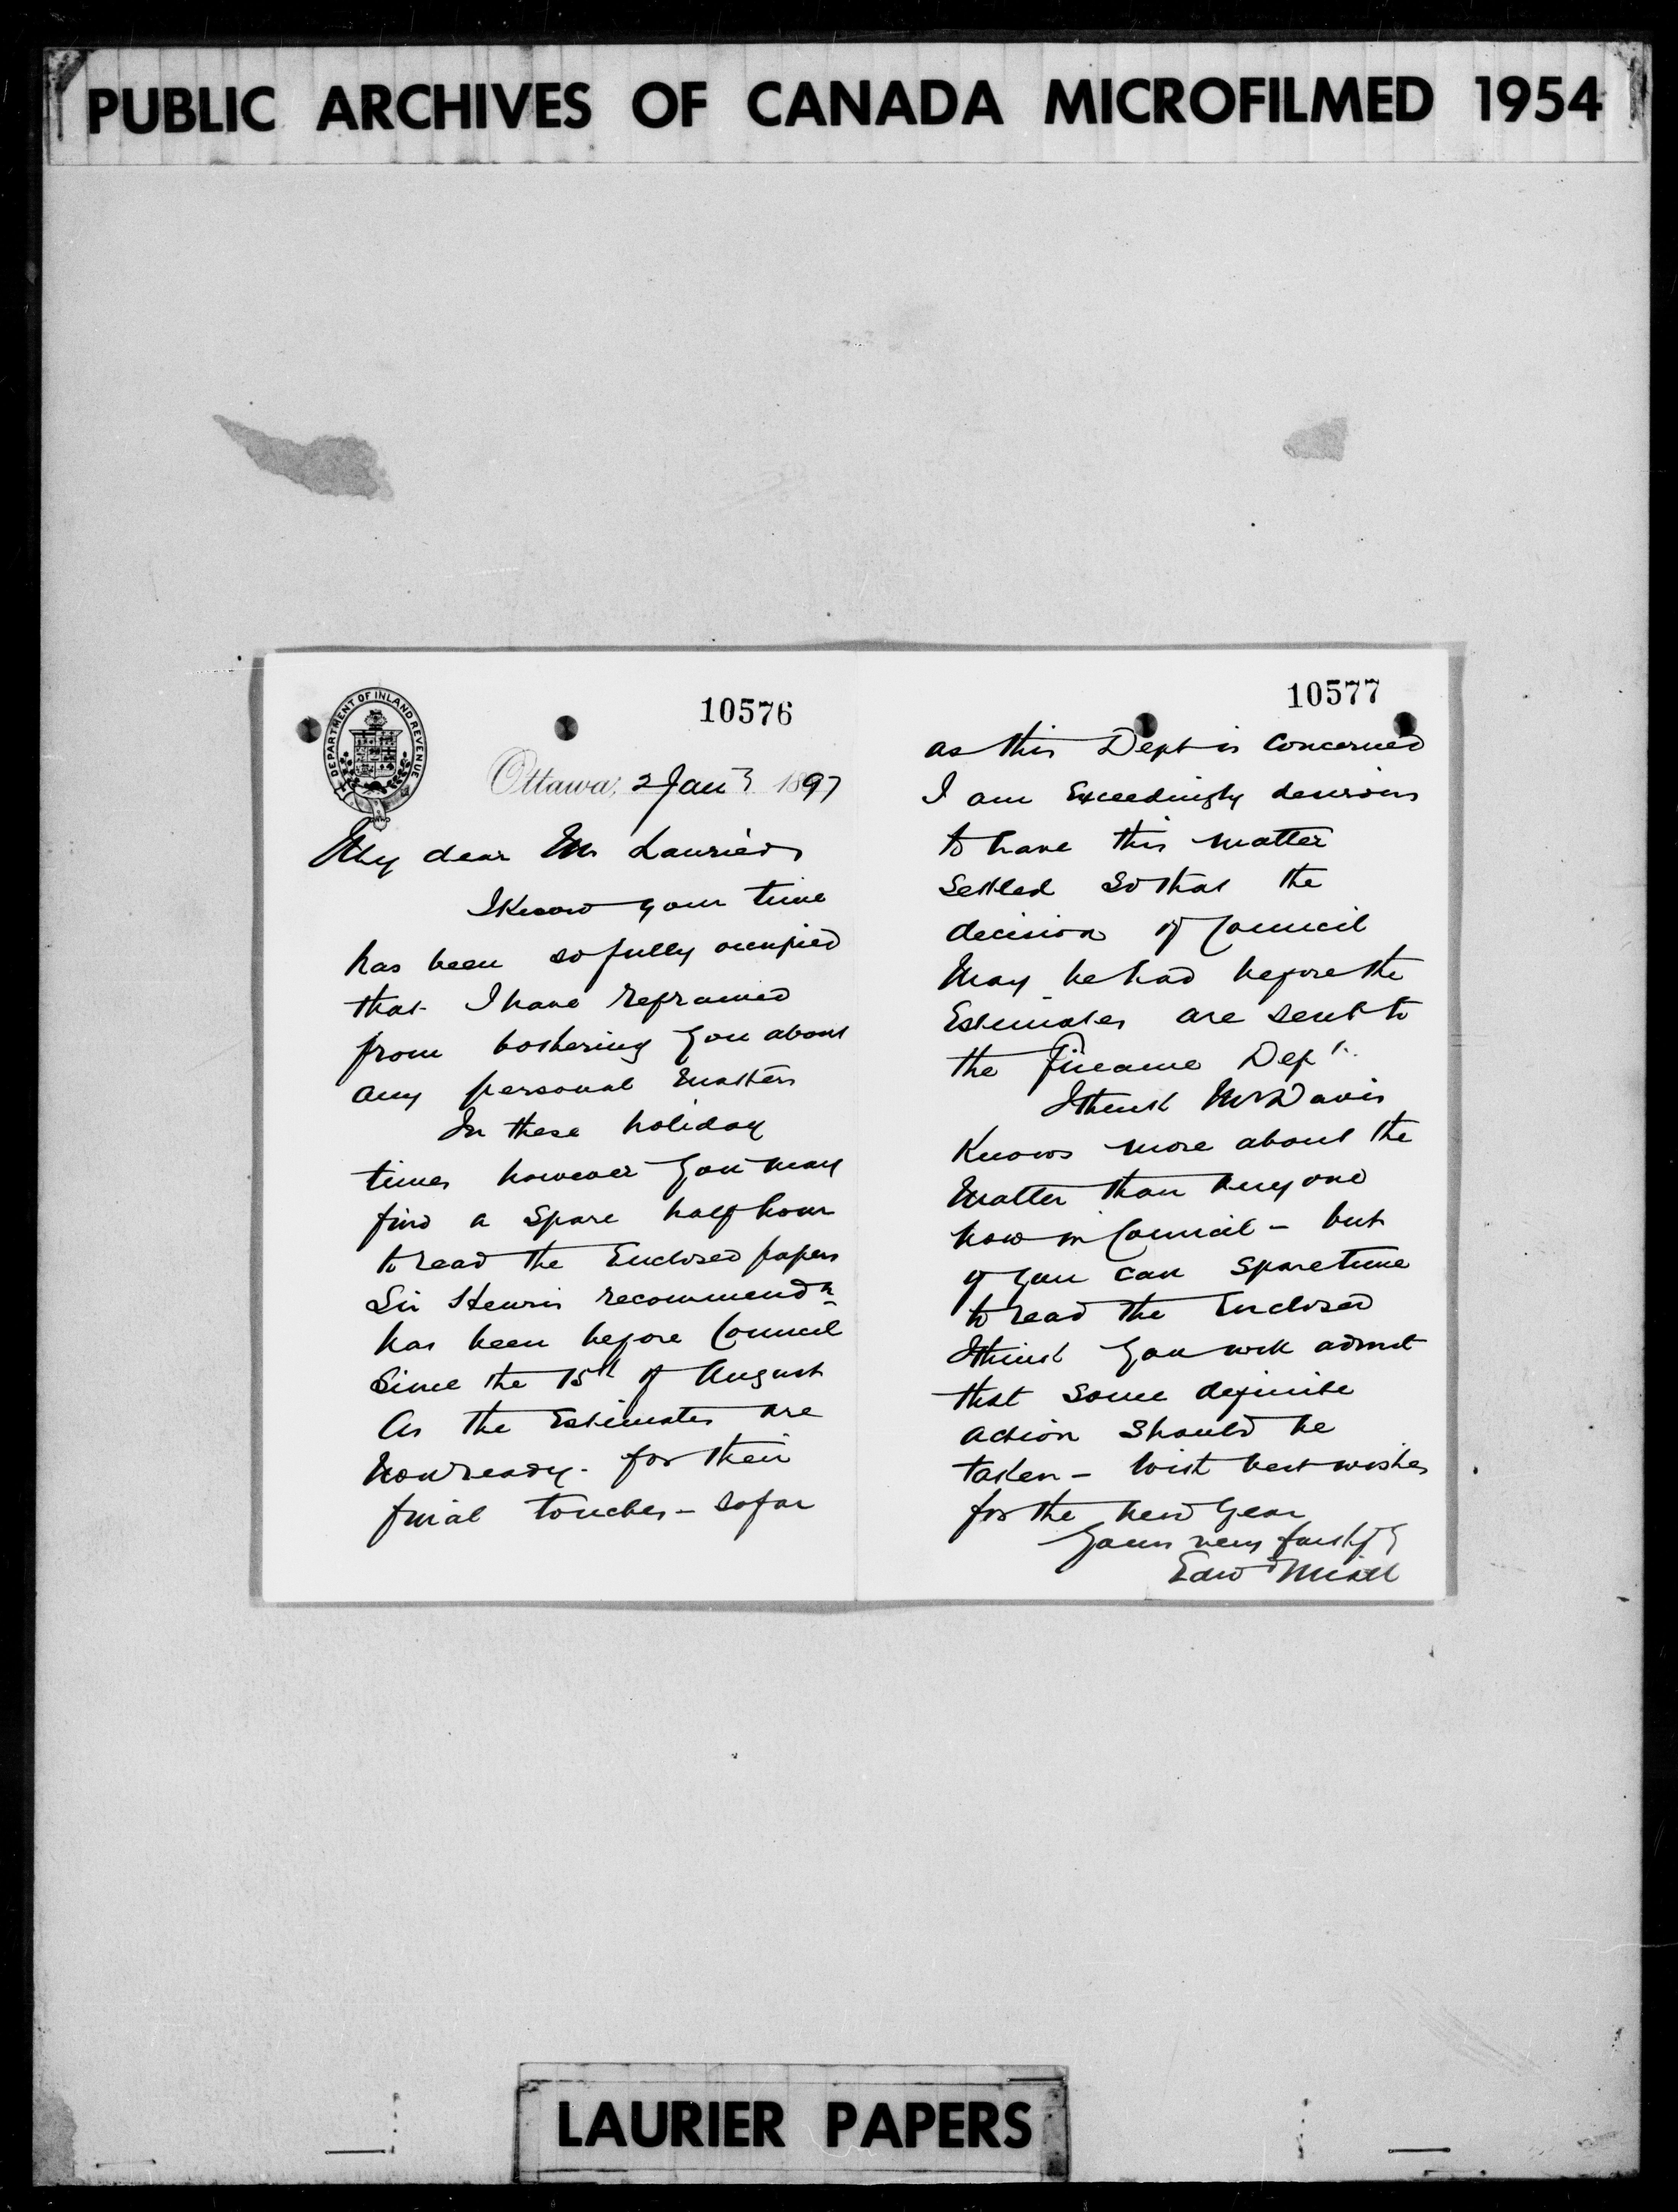 PUBLIC ARCHIVES OF CANADA MICROFILMED 1954
10576
DEPARTMENT OF INLAND REVENUE
Ottawa, 2 Jany 1897
My dear Mr Laurier
I Know your time
has been so fully occupied
that I have refrained
from bothering you about
any personal matters
In these holiday
times however you may
find a spare half hour
to read the Enclosed papers
Sir Henris recommendn
has been before Council
Since the 15th of August
As the Estimates are
now ready - for their
final touches - so far
10577
as this Dept is Concerned
I am Exceedingly desirous
to have this matter
settled so that the
decision of Council
May be had before the
Estimates are sent to
the Finance Dept.
I think Mr Davis
Knows more about the
Matter than any one
now in Council - but
if you can spare time
to read the Enclosed
I think you will admit
that some definite
action should be
taken - With best wishes
for the New Year
Yours very faithfy
Edwd Miall
LAURIER PAPERS